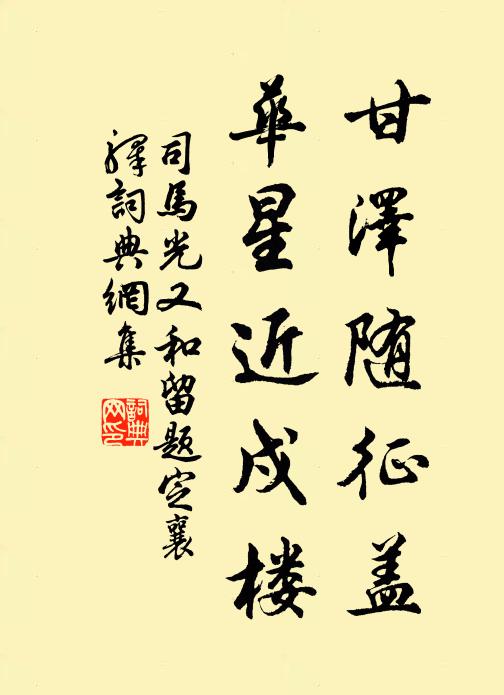 甘澤随征盖
華星近戍楼
司馬光又和留題定襄
禪詞典網集
詞典网印